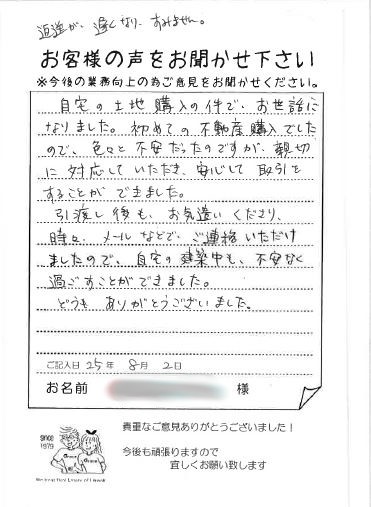 返送が、遅くなり、すみません。
お客様の声をお聞かせ下さい
※今後の業務向上の為ご意見をお聞かせください。
自宅の土地購入の件で、お世話に
なりました。初めての不動産購入でした
ので、色々と不安だったのですが、親切
に対応していただき、安心して取引を
することができました。
引渡し後も、お気遣いくださり、
時々、メールなどで、ご連絡いただけ
ましたので、自宅の建築中も、不安なく
過ごすことができました。
どうも ありがとうございました。
ご記入日 25年 8月 2日
お名前 様
since
1979
貴重なご意見ありがとうございました！
今後も頑張りますので
宜しくお願い致します